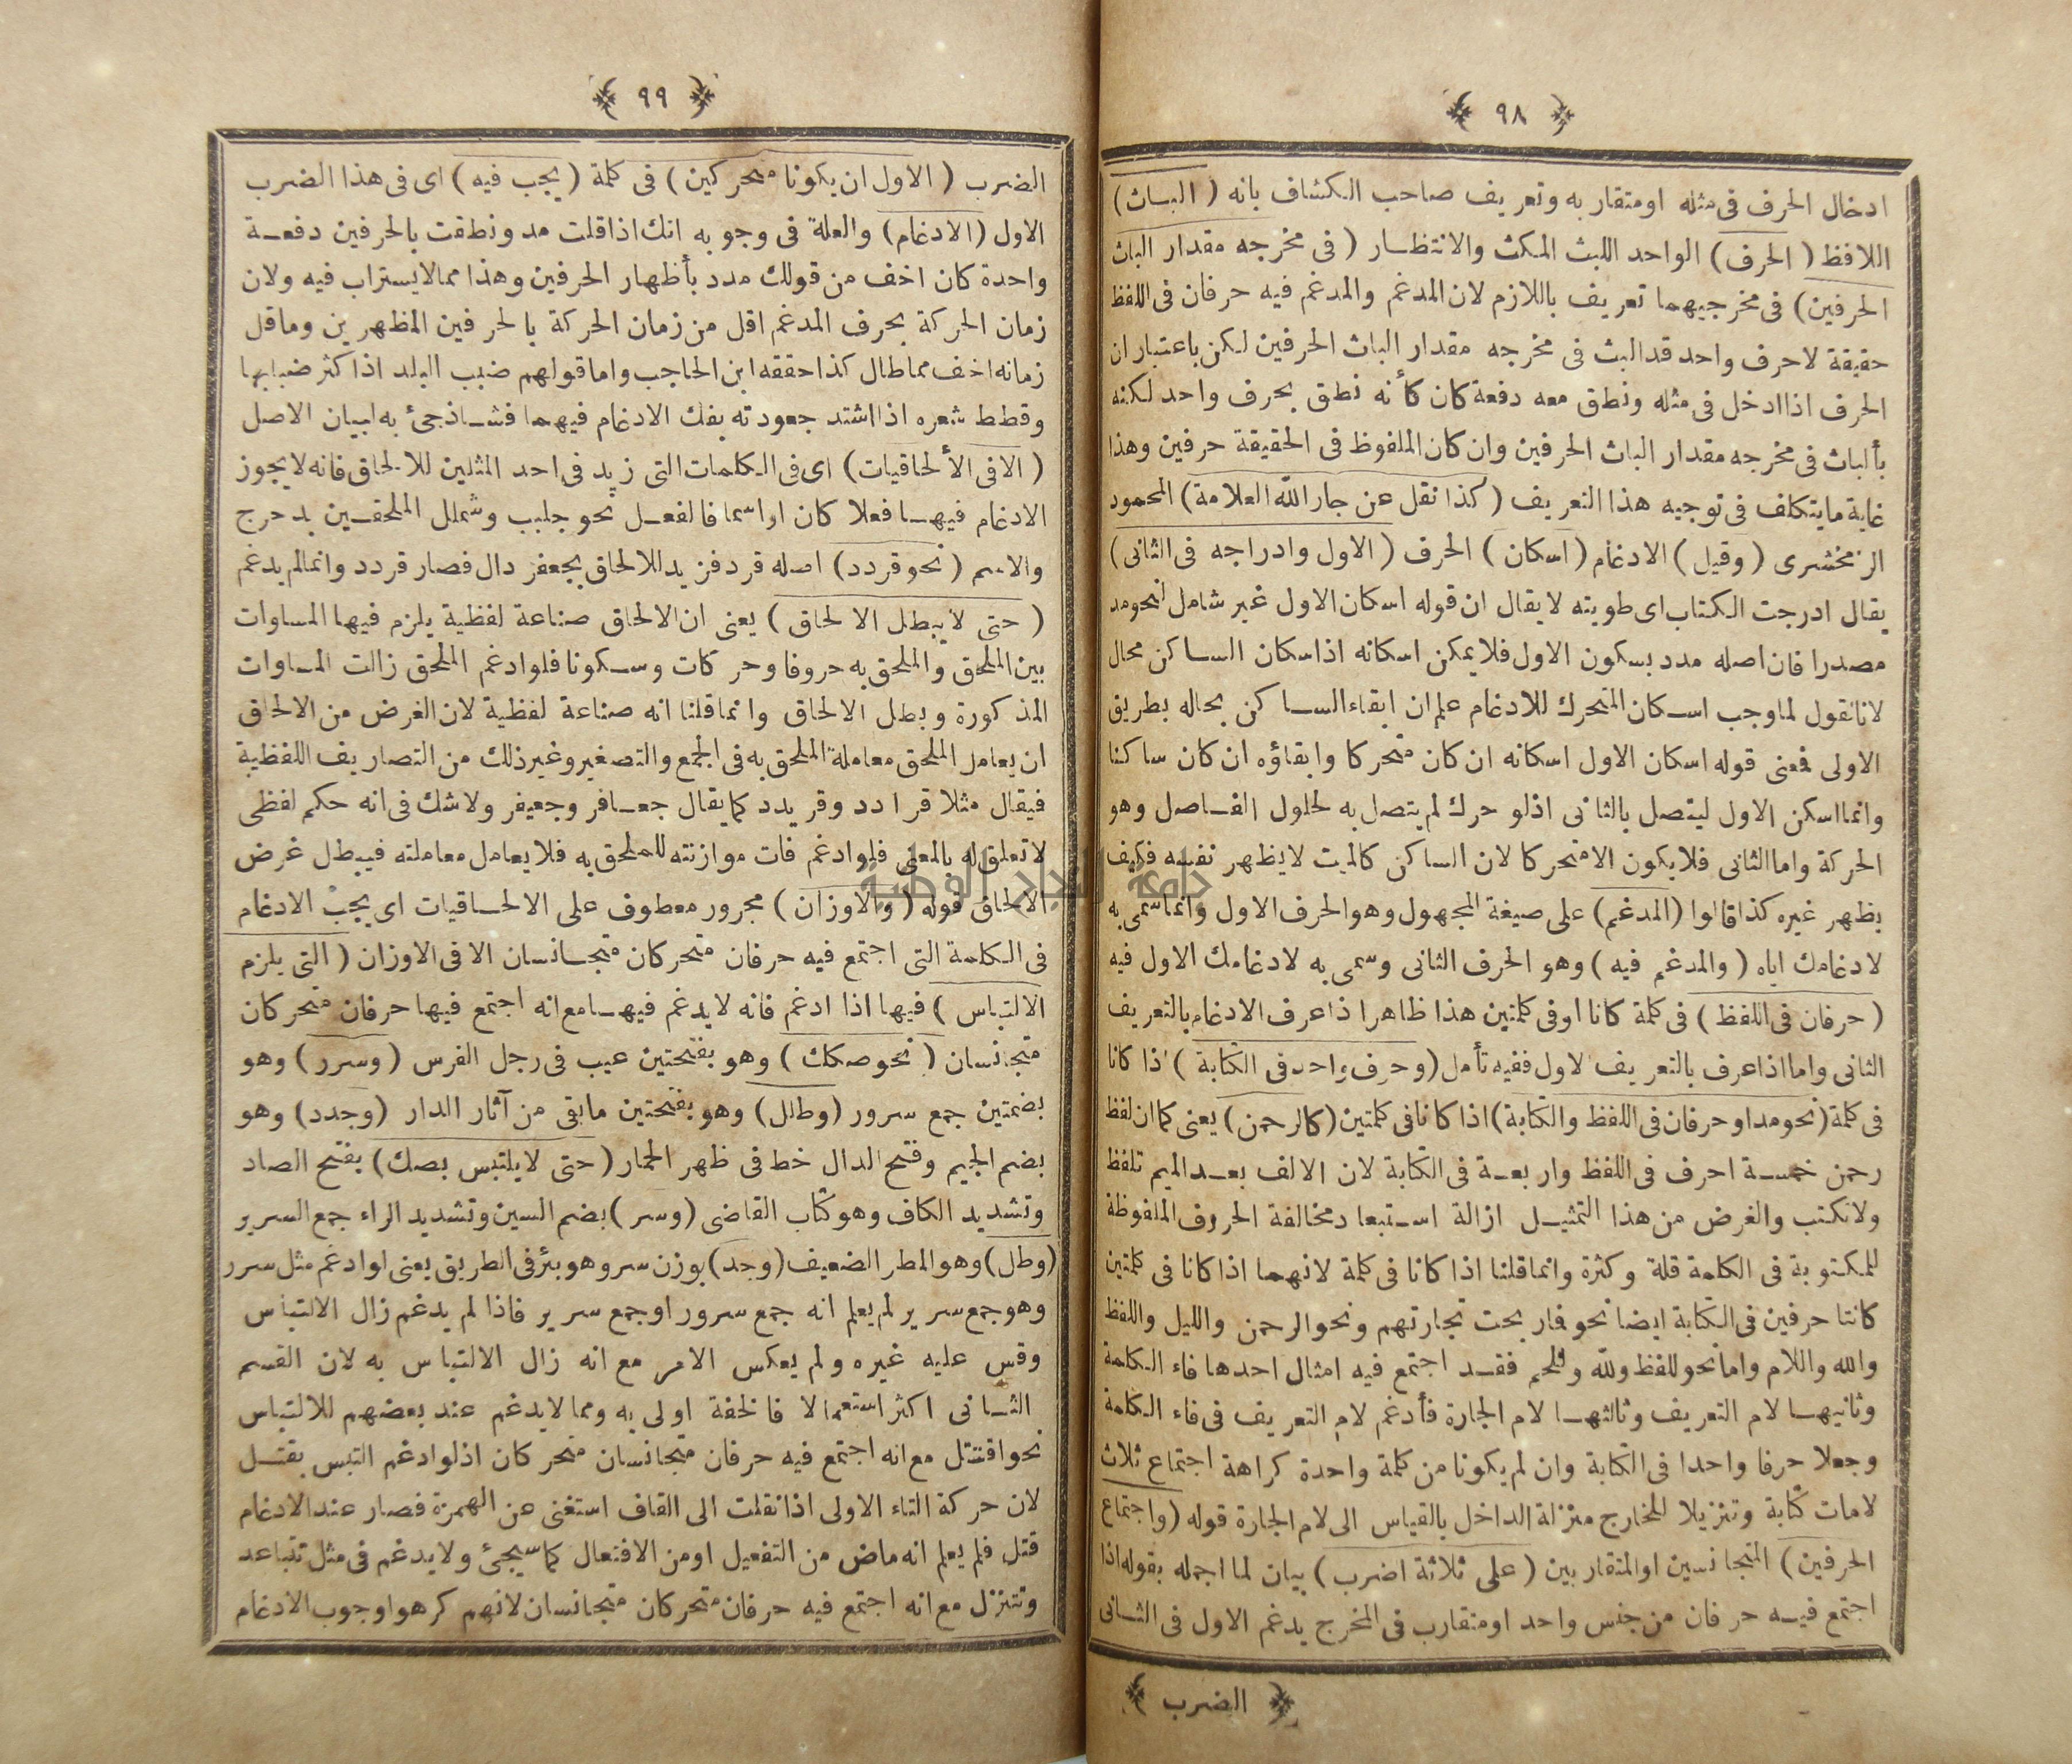 ﴿ ٩٨ ﴾
ادخال الحرف فى مثله او متقاربه وتعريف صاحب الكشاف بانه ( الباث )
اللافظ ( الحرف ) الواحد اللبث المكث والانتظار ( فى مخرجه مقدار الباث
الحرفين ) فى مخرجيهما تعريف باللازم لان المدغم والمدغم فيه حرفان فى اللفظ
حقيقة لا حرف واحد قد البث فى مخرجه مقدار الباث الحرفين لكن باعتبار ان
الحرف اذا ادخل فى مثله ونطق معه دفعة كان كأنه نطق بحرف واحد لكنه
بألباث فى مخرجه مقدار الباث الحرفين وان كان الملفوظ فى الحقيقة حرفين وهذا
غاية ما يتكلف فى توجيه هذا التعريف ( كذا نقل عن جار الله العلامة ) المحمود
الزمخشرى ( وقيل ) الادغام ( اسكان ) الحرف ( الاول وادراجه فى الثانى )
يقال ادرجت الكتاب اى طويته لا يقال ان قوله اسكان الاول غير شامل لنحو مد
مصدرا فان اصله مدد بسكون الاول فلا يمكن اسكانه اذ اسكان الساكن محال
لانا نقول لما وجب اسكان المتحرك للادغام علم ان ابقاء الساكن بحاله بطريق
الاولى فمعنى قوله اسكان الاول اسكانه ان كان متحركا وابقاؤه ان كان ساكنا
وانما اسكن الاول ليتصل بالثانى اذ لو حرك لم يتصل به لحلول الفاصل وهو
الحركة واما الثانى فلا يكون الا متحركا لان الساكن كالميت لا يظهر نفسه فكيف
يظهر غيره كذا قالوا ( المدغم ) على صيغة المجهول وهو الحرف الاول وانما سمى به
لادغامك اياه ( والمدغم فيه ) وهو الحرف الثانى وسمى به لادغامك الاول فيه
( حرفان فى اللفظ ) فى كلمة كانا او فى كلمتين هذا ظاهر اذا عرف الادغام بالتعريف
الثانى واما اذا عرف بالتعريف لاول ففيه تأمل ( وحرف واحد فى الكتابة ) اذا كانا
فى كلمة ( نحو مد او حرفان فى اللفظ والكتابة ) اذا كانا فى كلمتين ( كالرحمن ) يعنى كما ان لفظ
رحمن خمسة احرف فى اللفظ واربعة فى الكتابة لان الالف بعد الميم تلفظ
ولا تكتب والغرض من هذا التمثيل ازالة استبعاد مخالفة الحروف الملفوظة
للمكتوبة فى الكلمة قلة وكثرة وانما قلنا اذا كانا فى كلمة لانهما اذا كانا فى كلمتين
كانتا حرفين فى الكتابة ايضا نحو فار بحت تجارتهم ونحو الرحمن والليل واللفظ
والله واللام واما نحو للفظ ولله وللحم فقد اجتمع فيه امثال احدها فاء الكلمة
وثانيها لام التعريف وثالثها لام الجارة فأدغم لام التعريف فى فاء الكلمة
وجعلا حرفا واحدا فى الكتابة وان لم يكونا من كلمة واحدة كراهة اجتماع ثلاث
لامات كتابة وتنزيلا للخارج منزلة الداخل بالقياس الى لام الجارة قوله ( واجتماع
الحرفين ) المتجانسين او المتقاربين ( على ثلاثة اضرب ) بيان لما اجمله بقوله اذا
اجتمع فيه حرفان من جنس واحد او متقارب فى المخرج يدغم الاول فى الثانى
﴿ الضرب ﴾
﴿ ٩٩ ﴾
الضرب ( الاول ان يكونا متحركين ) فى كلمة ( يجب فيه ) اى فى هذا الضرب
الاول ( الادغام ) والعلة فى وجوبه انك اذا قلت مد ونطقت بالحرفين دفعة
واحدة كان اخف من قولك مدد بأظهار الحرفين وهذا مما لا يستراب فيه ولان
زمان الحركة بحرف المدغم اقل من زمان الحركة بالحرفين المظهرين وما قل
زمانه اخف مما طال كذا حققه ابن الحاجب واما قولهم ضبب البلد اذا كثر ضبابها
وقطط شعره اذا اشتد جعودته بفك الادغام فيهما فشاذ جئ به لبيان الاصل
( الا فى الألحاقيات ) اى فى الكلمات التى زيد فى احد المثلين للالحاق فانه لا يجوز
الادغام فيها فعلا كان او اسما فالفعل نحو جلبب وشملل الملحقين بدحرج
والاسم ( نحو قردد ) اصله قرد فزيد للالحاق بجعفر دال فصار قردد وانما لم يدغم
( حتى لا يبطل الالحاق ) يعنى ان الالحاق صناعة لفظية يلزم فيها المساوات
بين الملحق والملحق به حروفا وحركات وسكونا فلو ادغم الملحق زالت المساوات
المذكورة وبطل الالحاق وانما قلنا انه صناعة لفظية لان الغرض من الالحاق
ان يعامل الملحق معاملة الملحق به فى الجمع والتصغير وغير ذلك من التصاريف اللفظية
فيقال مثلا قرادد وقريدد كما يقال جعافر وجعيفر ولا شك فى انه حكم لفظى
لا تعلق له بالمعنى فلو ادغم فات موازنته للملحق به فلا يعامل معاملته فيبطل غرض
الالحاق قوله ( والاوزان ) مجرور معطوف على الالحاقيات اى يجب الادغام
فى الكلمة التى اجتمع فيه حرفان متحركان متجانسان الا فى الاوزان ( التى يلزم
الالتباس ) فيها اذا ادغم فانه لا يدغم فيها مع انه اجتمع فيها حرفان متحركان
متجانسان ( نحو صكك ) وهو بفتحتين عيب فى رجل الفرس ( وسرر ) وهو
بضمتين جمع سرور ( وطلل ) وهو بفتحتين ما بقى من آثار الدار ( وجدد ) وهو
بضم الجيم وفتح الدال خط فى ظهر الحمار ( حتى لا يلتبس بصك ) بفتح الصاد
وتشديد الكاف وهو كتاب القاضى ( وسر ) بضم السين وتشديد الراء جمع السرير
( وطل ) وهو المطر الضعيف ( وجد ) بوزن سر وهو بئر فى الطريق يعنى لو ادغم مثل سرر
وهو جمع سرير لم يعلم انه جمع سرور او جمع سرير فاذا لم يدغم زال الالتباس
وقس عليه غيره ولم يعكس الامر مع انه زال الالتباس به لان القسم
الثانى اكثر استعمالا فالخفة اولى به ومما لا يدغم عند بعضهم للالتباس
نحو اقتتل مع انه اجتمع فيه حرفان متجانسان متحركان اذ لو ادغم التبس بقتل
لان حركة التاء الاولى اذا نقلت الى القاف استغنى عن الهمزة فصار عند الادغام
قتل فلم يعلم انه ماض من التفعيل او من الافتعال كما سيجئ ولا يدغم فى مثل تتباعد
وتتنزل مع انه اجتمع فيه حرفان متحركان متجانسان لانهم كرهوا وجوب الادغام
جامعة النجاح الوطنية